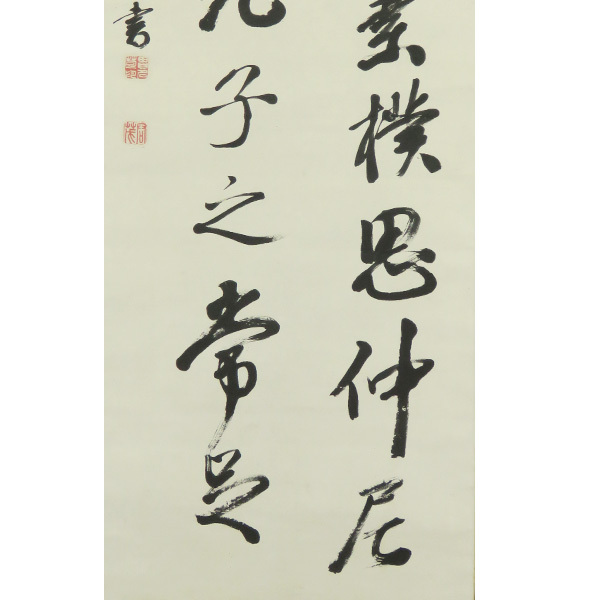 素樸思仲尼
子之常足
書